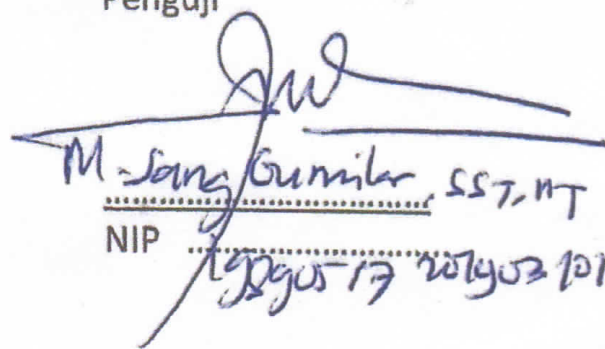 Penguji
M. Sang Gumilar, SST, MT
NIP 19890517 201903 101